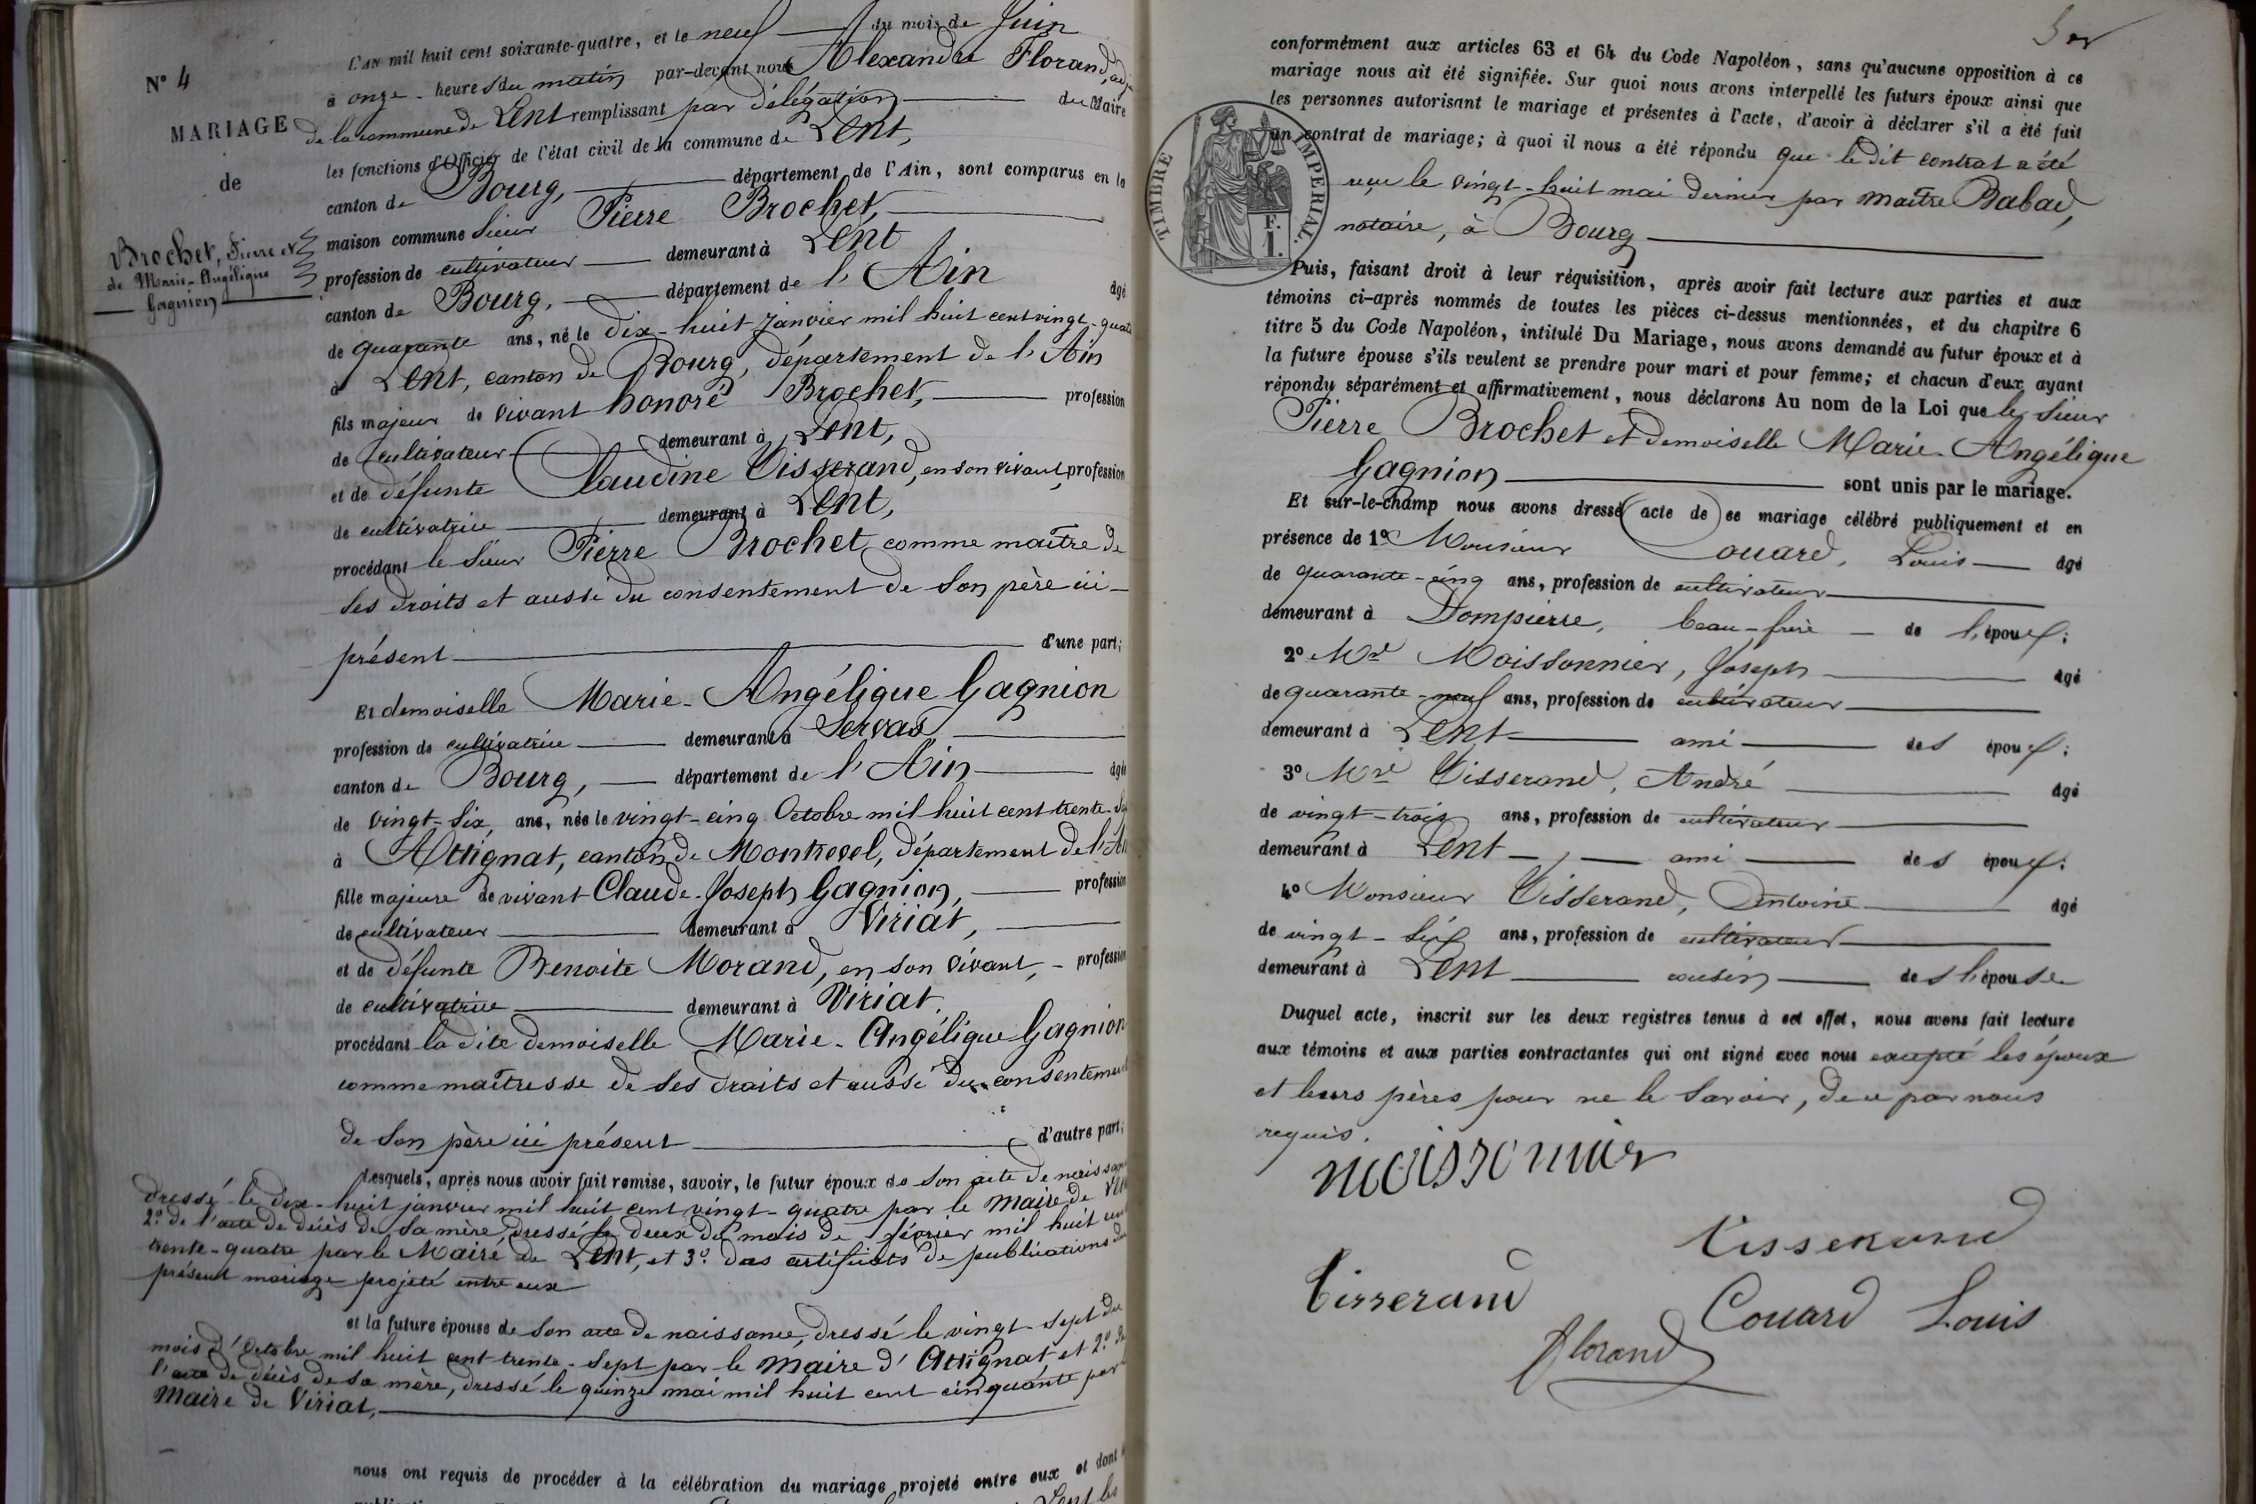 N° 4
MARIAGE
de
Brochet, Pierre et
de Marie-Angélique
Gagnion
L'an mil huit cent soixante-quatre, et le neuf du mois de Juin
à onze heures du matin par-devant nous Alexandre Florand,
de la commune de Lent remplissant par délégation du Maire
les fonctions d'Officier de l'état civil de la commune de Lent,
canton de Bourg, département de l'Ain, sont comparus en la
maison commune Sieur Pierre Brochet,
profession de cultivateur demeurant à Lent
canton de Bourg, département de l'Ain âgé
de quarante ans, né le dix-huit janvier mil huit cent vingt-quatre
à Lent, canton de Bourg, département de l'Ain
fils majeur de vivant honoré Brochet, profession
de cultivateur demeurant à Lent,
et de défunte Claudine Tisserand, en son vivant, profession
de cultivatrice demeurant à Lent,
procédant le Sieur Pierre Brochet comme maître de
ses droits et aussi du consentement de son père ici
présent d'une part;
Et demoiselle Marie-Angélique Gagnion
profession de cultivatrice demeurant à Servas
canton de Bourg, département de l'Ain âgée
de vingt-six ans, née le vingt-cinq Octobre mil huit cent trente-
à Attignat, canton de Montrevel, département de l'Ain
fille majeure de vivant Claude-Joseph Gagnion, profession
de cultivateur demeurant à Viriat,
et de défunte Benoite Morand, en son vivant, profession
de cultivatrice demeurant à Viriat.
procédant la dite demoiselle Marie-Angélique Gagnion
comme maîtresse de ses droits et aussi du consentement
de son père ici présent d'autre part;
Lesquels, après nous avoir fait remise, savoir, le futur époux de son acte de naissance
dressé le dix-huit janvier mil huit cent vingt-quatre par le Maire de
2° de l'acte de décès de sa mère, dressé le deux du mois de février mil huit cent
trente-quatre par le Maire de Lent, et 3° des certificats de publications du
présent mariage projeté entre eux
et la future épouse de son acte de naissance, dressé le vingt-sept du
mois d'Octobre mil huit cent trente-sept par le Maire d'Attignat, et 2° de
l'acte de décès de sa mère, dressé le quinze mai mil huit cent cinquante par
Maire de Viriat.
nous ont requis de procéder à la célébration du mariage projeté entre eux et dont
Lent les
conformément aux articles 63 et 64 du Code Napoléon, sans qu'aucune opposition à ce
mariage nous ait été signifiée. Sur quoi nous avons interpellé les futurs époux ainsi que
les personnes autorisant le mariage et présentes à l'acte, d'avoir à déclarer s'il a été fait
un contrat de mariage; à quoi il nous a été répondu que le dit contrat a été
reçu le vingt-huit mai dernier par maître Babad,
notaire, à Bourg
TIMBRE IMPERIAL.
F.
1.
Puis, faisant droit à leur réquisition, après avoir fait lecture aux parties et aux
témoins ci-après nommés de toutes les pièces ci-dessus mentionnées, et du chapitre 6
titre 5 du Code Napoléon, intitulé Du Mariage, nous avons demandé au futur époux et à
la future épouse s'ils veulent se prendre pour mari et pour femme; et chacun d'eux ayant
répondu séparément et affirmativement, nous déclarons Au nom de la Loi que le Sieur
Pierre Brochet et demoiselle Marie-Angélique
Gagnion sont unis par le mariage.
Et sur-le-champ nous avons dressé acte de ce mariage célébré publiquement et en
présence de 1° Monsieur Couard, Louis âgé
de quarante-cinq ans, profession de cultivateur
demeurant à Dompierre, beau-frère de l'époux;
2° Mr Moissonnier, Joseph âgé
de quarante-neuf ans, profession de cultivateur
demeurant à Lent ami des époux;
3° Mr Tisserand, André âgé
de vingt-trois ans, profession de cultivateur
demeurant à Lent ami des époux;
4° Monsieur Tisserand, Antoine âgé
de vingt-six ans, profession de cultivateur
demeurant à Lent cousin de l'épouse
Duquel acte, inscrit sur les deux registres tenus à cet effet, nous avons fait lecture
aux témoins et aux parties contractantes qui ont signé avec nous excepté les époux
et leurs pères pour ne le savoir, de ce par nous
requis.
moissonnier
Tisserand
Tisserand
Couard Louis
Florand